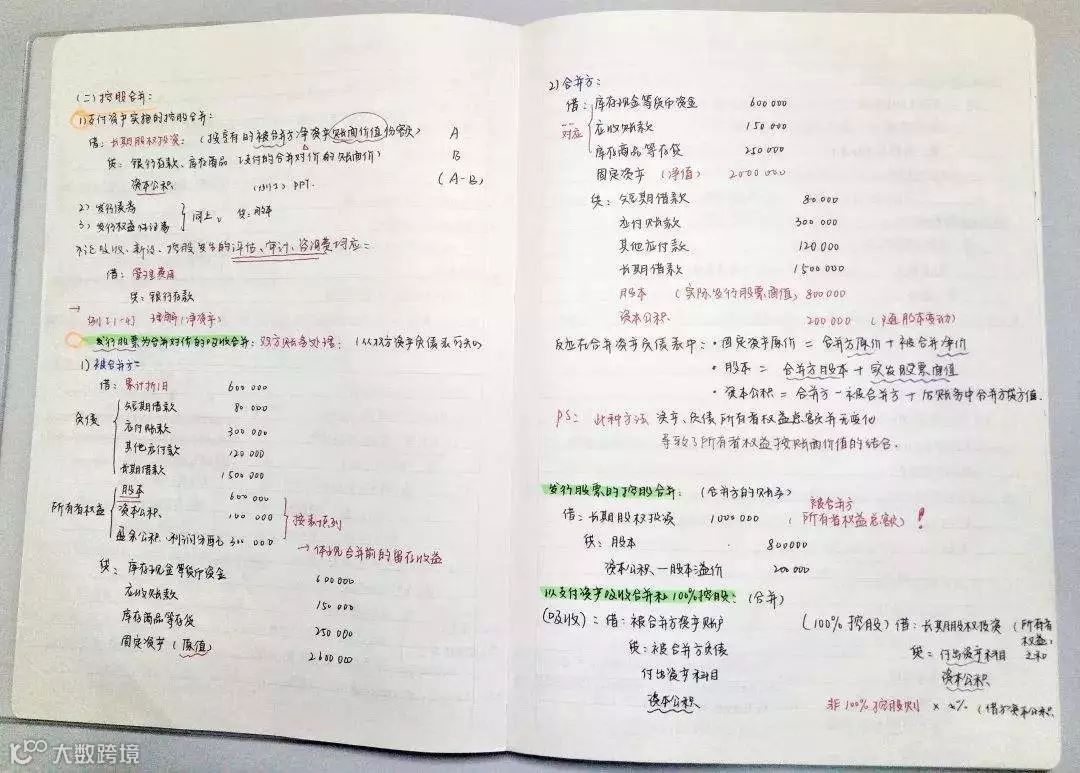 (二) 控股合并:
1) 支付资产实施的控股合并:
借: 长期股权投资: (按享有的被合并方净资产账面价值份额) A
贷: 银行存款、库存商品 (支付的合并对价的账面价) B
资本公积 (例1) PPT. (A-B)
2) 发行债券
3) 发行权益性证券 } 同上、 贷: 股本
不论吸收、新设、控股发生的评估、审计、咨询费均应:
借: 管理费用
贷: 银行存款
→ 例[1-4] 理解(净资产)
发行股票为合并对价的吸收合并: 双方账务处理: (从双方资产负债表可知)
1) 被合并方:
借: 累计折旧 600 000
负债
短期借款 80 000
应付账款 300 000
其他应付款 120 000
长期借款 1500 000
所有者权益
股本 600 000
资本公积 100 000
盈余公积、利润分配 300 000
按表项列
→ 体现合并前的留存收益
贷: 库存现金等货币资金 600 000
应收账款 150 000
库存商品等存货 250 000
固定资产 (原值) 2600 000
2) 合并方:
借: 库存现金等货币资金 600 000
对应
应收账款 150 000
库存商品等存货 250 000
固定资产 (净值) 2000 000
贷: 短期借款 80 000
应付账款 300 000
其他应付款 120 000
长期借款 1500 000
股本 (实际发行股票面值) 800 000
资本公积 200 000 (随股本变动)
反应在合并资产负债表中: · 固定资产原价 = 合并方原价 + 被合并净价
· 股本 = 合并方股本 + 实发股票面值
· 资本公积 = 合并方 - 被合并方 + 后账务中合并方贷方值.
PS: 此种方法 资产、负债 所有者权益总额并无变化
导致了所有者权益按账面价值的结合.
发行股票的控股合并: (合并方的账务)
借: 长期股权投资 1000 000 (被合并方
所有者权益总额) !
贷: 股本 800000
资本公积—股本溢价 200 000
以支付资产吸收合并和100%控股: (合并)
(吸收): 借: 被合并方资产账户
贷: 被合并方负债
付出资产科目
资本公积
(100%控股) 借: 长期股权投资 (所有者
权益)
贷: 付出资产科目 之和
资本公积
非100%控股则 × x% (借方资本公积
大数跨境